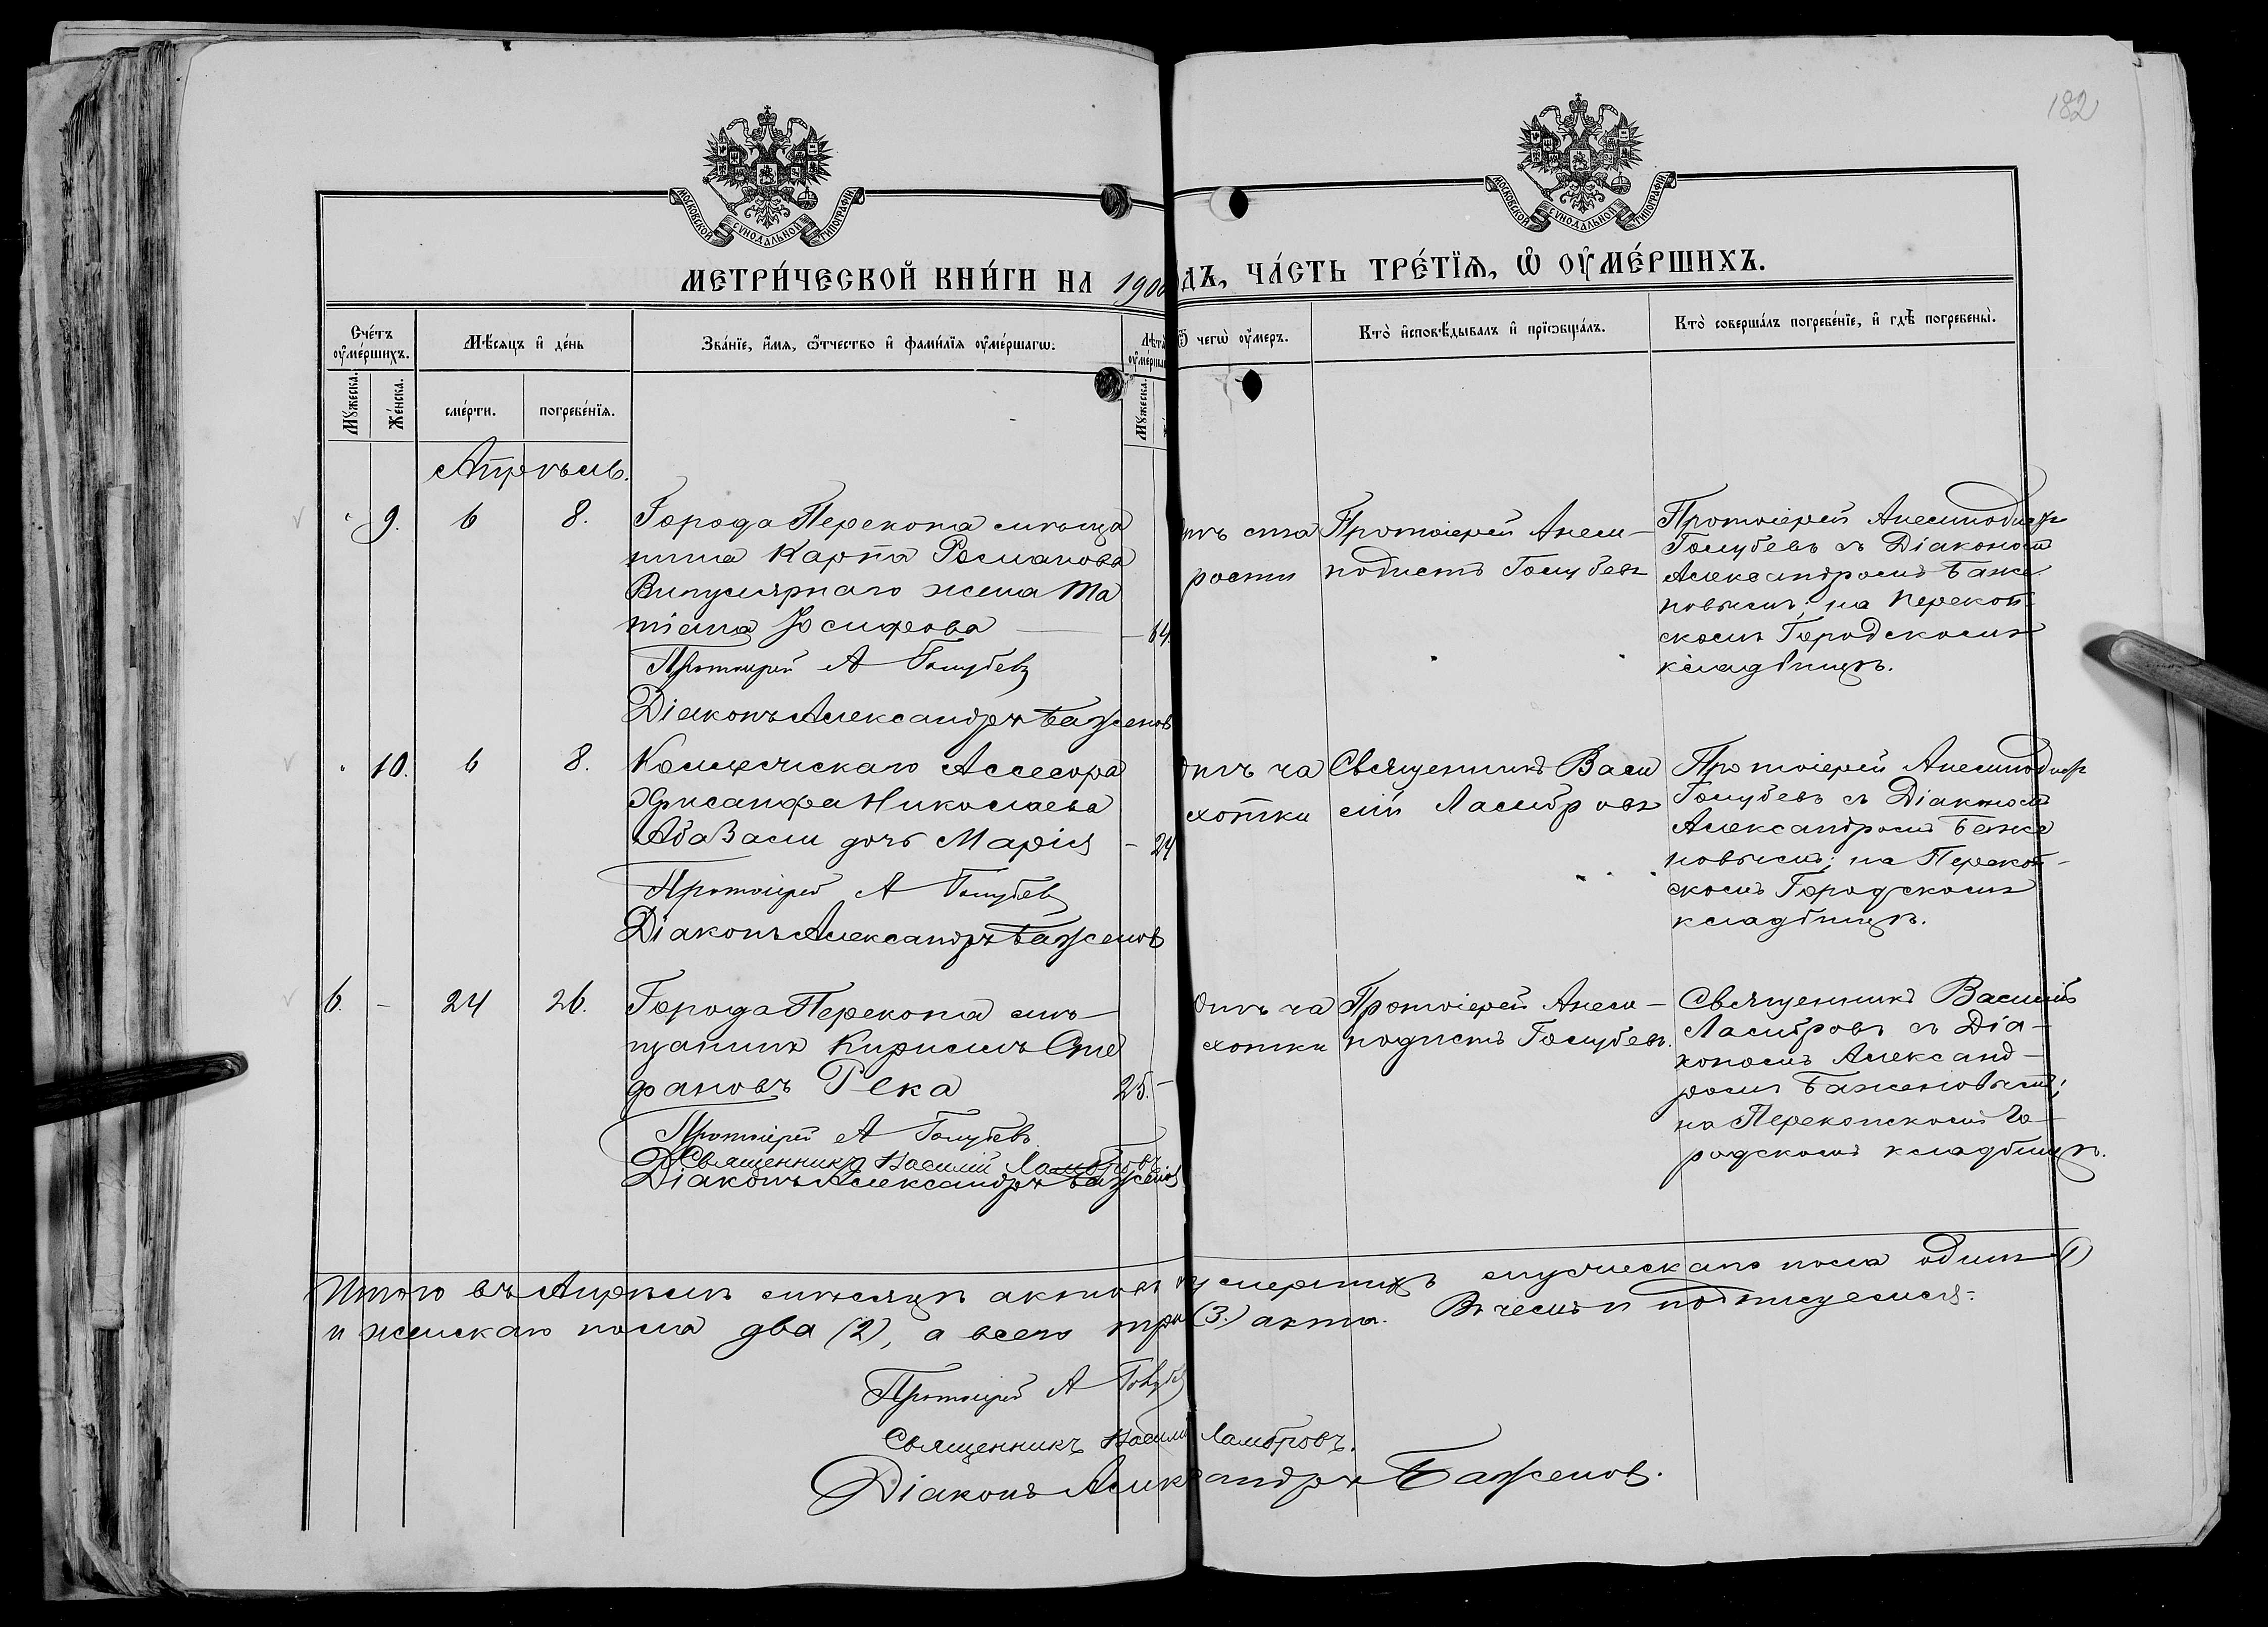 182
МОСКОВСКОЙ СУНОДАЛЬНОЙ ТИПОГРАФІИ
МОСКОВСКОЙ СУНОДАЛЬНОЙ ТИПОГРАФІИ
МЕТРИ́ЧЕСКОЙ КНИ́ГИ НА 1900
ДЪ, ЧА́СТЬ ТРЕ́ТЇѦ, Ѡ҆ ОУ҆МЕ́РШИХЪ.
Сче́тъ оу҆ме́ршихъ.
Мѣ́сяцъ и҆ де́нь
Зва́нїе, и҆́мя, ѻ҆́тчество и҆ фами́лїя оу҆ме́ршагѡ.
Лѣта̀ оу҆ме́рша
Ѿ чегѡ̀ оу҆́меръ.
Кто̀ и҆сповѣ́дывалъ и҆ прїѡбща́лъ.
Кто̀ соверша́лъ погребе́нїе, и҆ гдѣ̀ погребены̀.
Мꙋ́жеска.
Же́нска.
сме́рти.
погребе́нїя.
Мꙋ́жеска.
Апрѣль.
9. 6 8.
Города Перекопа мѣща
нина Карпа Романова
жена Та
тіана Іосифова — 64
Протоіерей А Голубевъ
Діаконъ Александръ Баженов
отъ ста
рости
Протоіерей Анем-
подистъ Голубевъ
Протоіерей Анемподистъ
Голубевъ съ Діакономъ
Александромъ Баже
новымъ; на Перекоп-
скомъ Городскомъ
кладбищѣ.
10. 6 8.
Коллежскаго Ассесора
Хрисанфа Николаева
Абазасли дочь Марія - 24
Протоіерей А Голубевъ
Діаконъ Александръ Баженов
отъ ча
хотки
Священникъ Васи
лій Ламбровъ
Протоіерей Анемподистъ
Голубевъ съ Діакономъ
Александромъ Баже
новымъ; на Перекоп-
скомъ Городскомъ
кладбищѣ.
6. - 24 26.
Города Перекопа мѣ-
щанинъ Кириллъ Сте
фановъ Река 25. -
Протоіерей А Голубевъ
Священникъ Василій Ламбровъ
Діаконъ Александръ Баженов
отъ ча
хотки
Протоіерей Анем-
подистъ Голубевъ.
Священникъ Василій
Ламбровъ съ Діа-
кономъ Александ-
ромъ Баженовымъ;
на Перекопскомъ Го-
родскомъ кладбищѣ.
Итого въ Апрѣлѣ мѣсяцѣ актовъ умершихъ мужескаго пола одинъ (1)
и женскаго пола два (2), а всего три (3.) акта. Въ чемъ и подписуемся:
Протоіерей А Голубев
Священникъ Василій Ламбровъ.
Діаконъ Александръ Баженов.